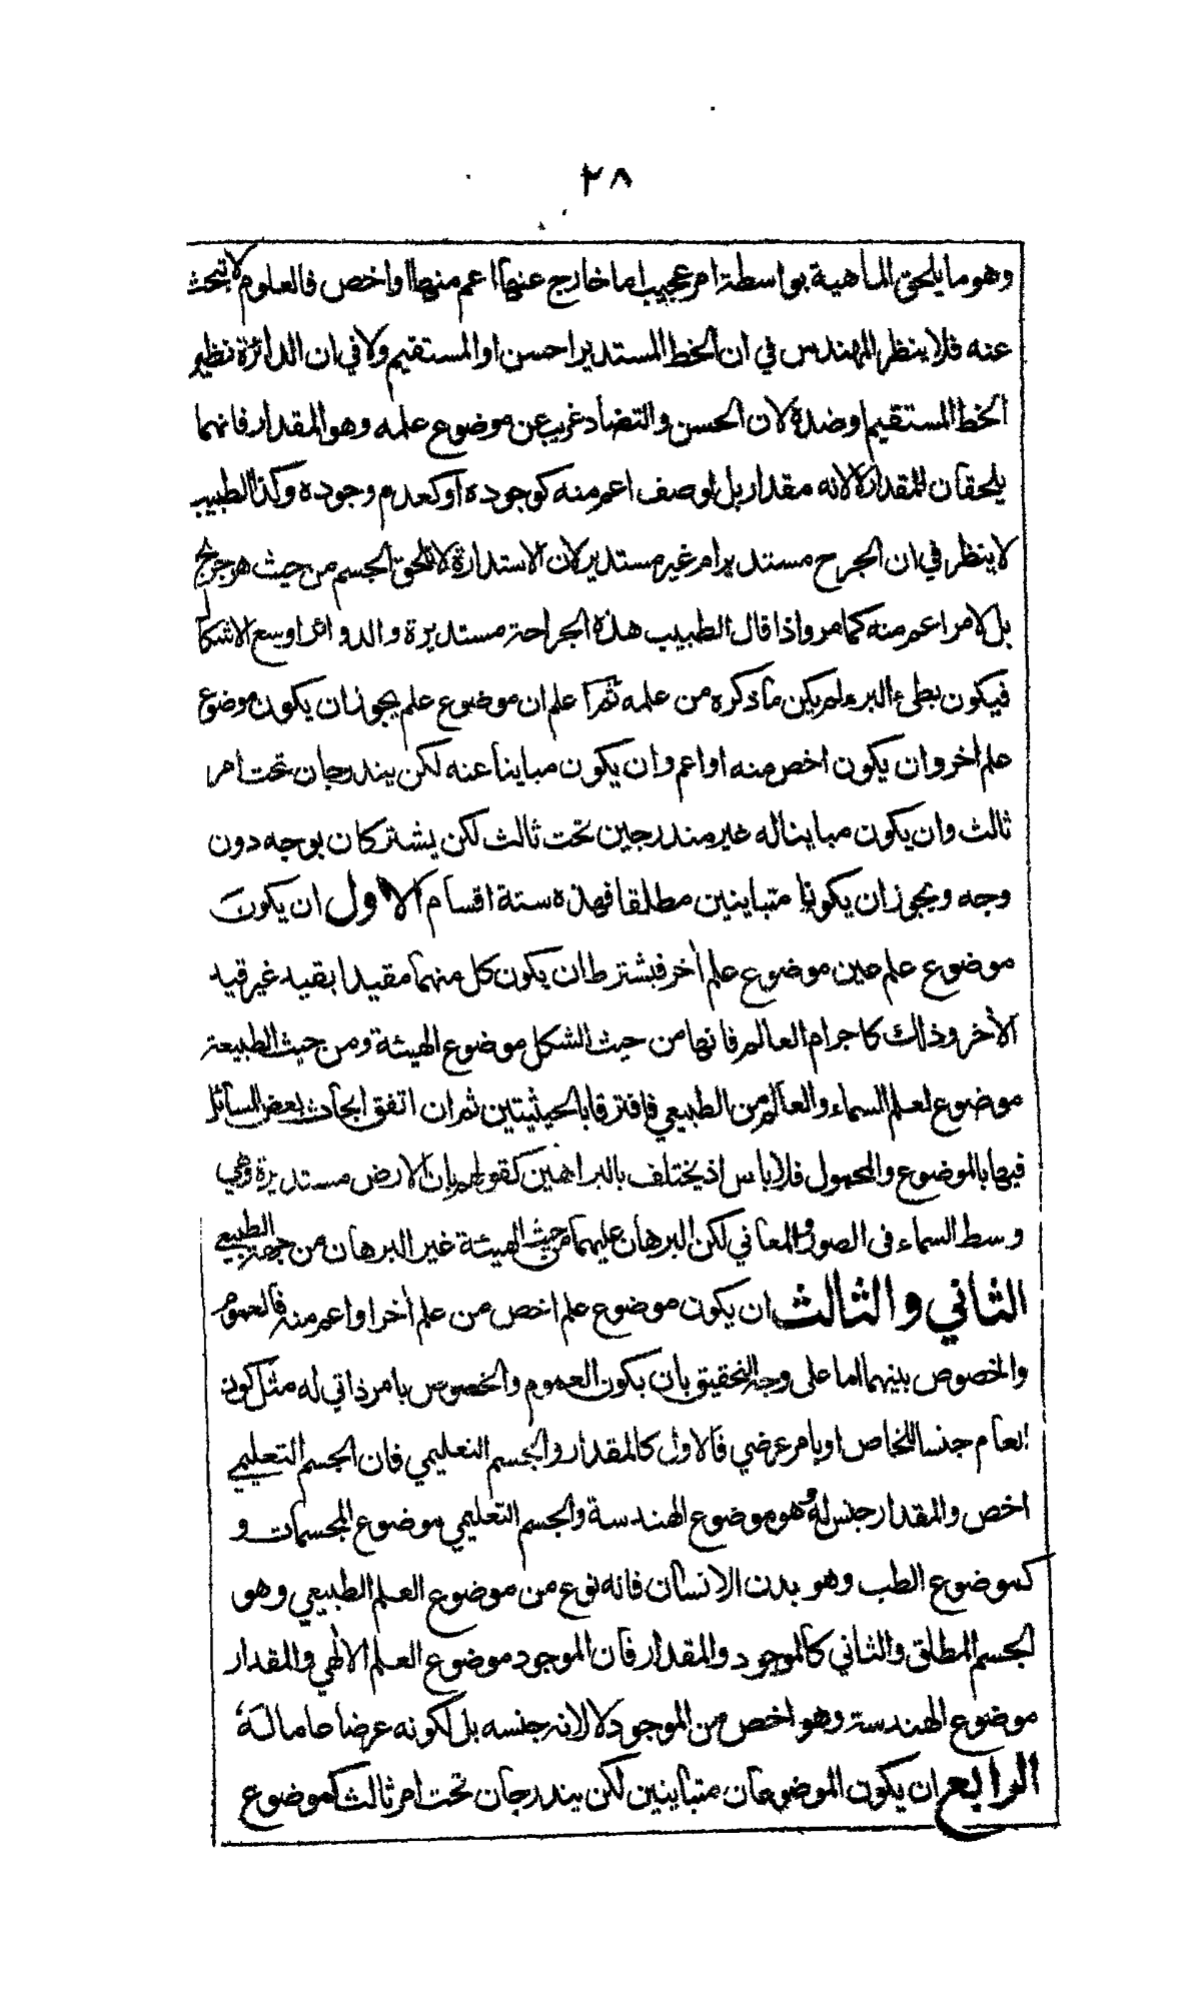 ٢٨
وهو ما يلحق الماهية بواسطة امر عجيب اما خارج عنها اعم منها او اخص فالعلوم لا تبحث
عنه فلا ينظر المهندس في ان الخط المستدير احسن او المستقيم ولا في ان الدائرة نظير
الخط المستقيم او ضده لان الحسن والتضاد غريب عن موضوع علمه وهو المقدار فانهما
يلحقان المقدار لا لانه مقدار بل لوصف اعم منه كوجوده او كعدم وجوده وكذا الطبيب
لا ينظر في ان الجرح مستدير ام غير مستدير لان الاستدارة لا تلحق الجسم من حيث هو جريح
بل لامر اعم منه كما مر واذا قال الطبيب هذه الجراحة مستديرة والدوائر اوسع الاشكال
فيكون بطيء البرء لم يكن ما ذكره من علمه ثم اعلم ان موضوع علم يجوز ان يكون موضوع
علم أخر وان يكون اخص منه او اعم وان يكون مباينا عنه لكن يندرجان تحت امر
ثالث وان يكون مباينا له غير مندرجين تحت ثالث لكن يشتركان بوجه دون
وجه ويجوز ان يكونا متباينين مطلقا فهذه ستة اقسام الاول ان يكون
موضوع علم عين موضوع علم أخر فيشترط ان يكون كل منهما مقيدا بقيد غير قيد
الأخر وذلك كاجرام العالم فانها من حيث الشكل موضوع الهيئة ومن حيث الطبيعة
موضوع لعلم السماء والعالم من الطبيعي فافترقا بالحيثيتين ثم ان اتفق ابحاث بعض المسائل
فيها بالموضوع والمحمول فلا باس اذ يختلف بالبراهين كقولهم بان الارض مستديرة وهي
وسط السماء في الصور والمعاني لكن البرهان عليهما من حيث الهيئة غير البرهان من جهة الطبيعي
الثاني والثالث ان يكون موضوع علم اخص من علم أخر او اعم منه فالعموم
والخصوص بينهما اما على وجه التحقيق بان يكون العموم والخصوص بامر ذاتي له مثل كون
العام جنسا للخاص او بامر عرضي فالاول كالمقدار والجسم التعليمي فان الجسم التعليمي
اخص والمقدار جنس له وهو موضوع الهندسة والجسم التعليمي موضوع المجسمات و
كموضوع الطب وهو بدن الانسان فانه نوع من موضوع العلم الطبيعي وهو
الجسم المطلق والثاني كالموجود والمقدار فان الموجود موضوع العلم الالهي والمقدار
موضوع الهندسة وهو اخص من الموجود لا لانه جنسه بل لكونه عرضا عاما له
الرابع ان يكون الموضوعان متباينين لكن يندرجان تحت امر ثالث كموضوع